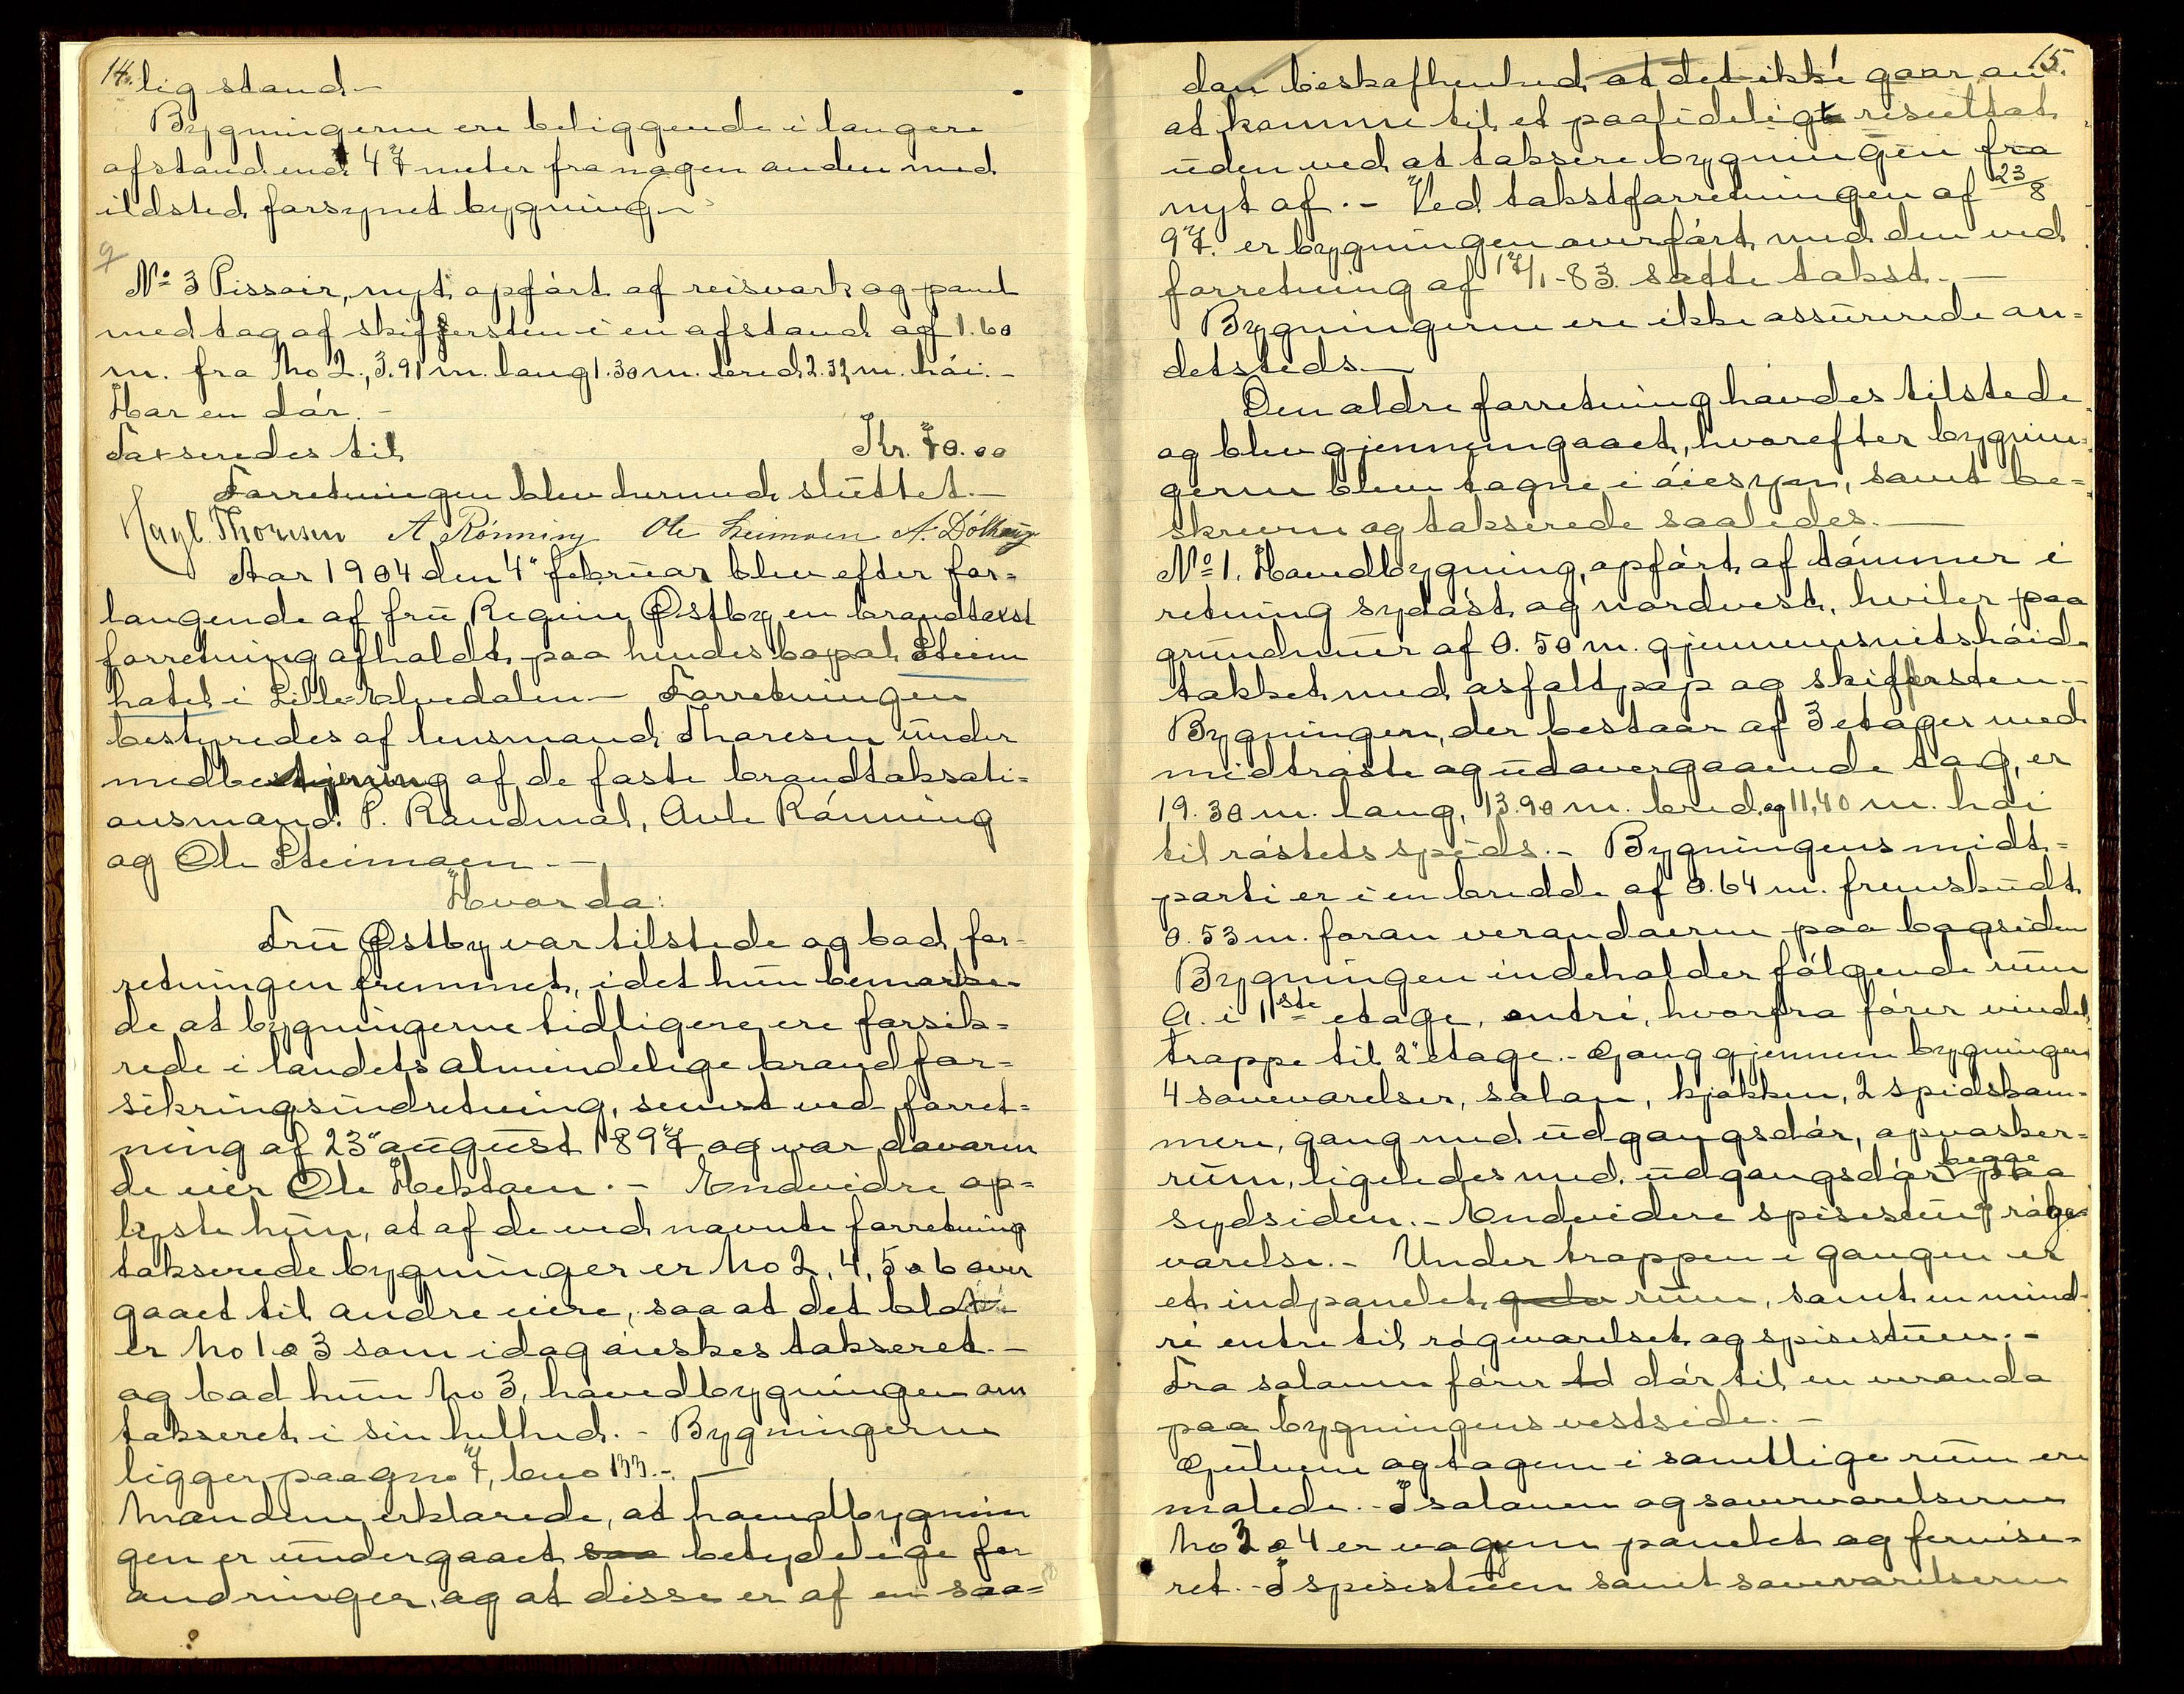 14.
lig stand.-
Bygningerne ere beliggende i længere
afstand end 47 meter fra nogen anden med
ildsted forsynet bygning.-
No 3 Pissoir, nyt, opført af reisværk og panel
med tag af skiffersten i en afstand af 1.60
m. fra No 2, 3.91 m. lang 1.30 m. bred 2.32 m. høi.-
Har en dør.-
Taxseredes til Kr. 70.00
Forretningen blev hermed sluttet.-
Hagb. Thoresen A Rønning Ole Steimoen A. Dølhaug
Aar 1904 den 4" februar blev efter for=
langende af fru Regine Østby en brandtaxst
forretning afholdt paa hendes bopæl Steim
hotel i Lille-Elvedalen - Forretningen
bestyredes af lensmand Thoresen under
medbetjening af de faste brandtaksati=
onsmænd P. Randmæl, Avle Rønning
og Ole Steimoen.-
Hvorda:
Fru Østby var tilstede og bad for-
retningen fremmet, idet hun bemærke-
de at bygningerne tidligere ere forsik=
rede i landets almindelige brandfor=
sikringsindretning, senest ved forret=
ning af 23" august 1897 og var daværen
de eier Ole Hektoen.- Endvidre op=
lyste hun, at af de ved nævnte forretning
takserede bygninger er No 2, 4, 5 o 6 over
gaaet til andre eiere, saa at det blot
er No 1 o 3 som idag ønskes takseret.-
og bad hun No 3, hovedbygningen om
takseret i sin helhed.- Bygningerne
ligger paa gno 7, bno 133.-
Mændene erklærede, at hovedbygnin
gen er undergaaet saa betydelige for
andringer, og at disse er af en saa=
15.
dan beskaffenhed at det ikke gaar an
at komme til et paalideligt resultat
uden ved at taksere bygningen fra
nyt af.- Ved takstforretningen af 23/8
97. er bygningen overført med den ved
forretning af 17/1-83 satte takst.-
Bygningerne ere ikke assurerede an=
detsteds.-
Den ældre forretning havdes tilstede
og blev gjennemgaaet, hvorefter bygnin=
gerne blev tagne i øiesyn, samt be=
skrevne og takserede saaledes.-
No 1. Hovedbygning, opført af tømmer i
retning sydøst og nordvest, hviler paa
grundmur af 0.50 m. gjennemsnitshøid
takket med asfaltpap og skiffersten.-
Bygningen, der bestaar af 3 etager med
midtrøste og udovergaaende tag, er
19.30 m. lang, 13.90 m. bred og 11,40 m. høi
til røstets spids.- Bygningens midt=
parti er i en bredde af 0.64 m. fremskudt
0.53 m. foran verandaerne paa bagsiden
Bygningen indeholder følgende rum
a. i 1ste etage, entré, hvorfra fører vindel
trappe til 2" etage.- Gang gjennem bygningen
4 soveværelser, salon, kjøkken, 2 spidskam=
mere, gang med udgangsdør, opvasker=
rum, ligeledes med udgangsdør begge paa
sydsiden.- Endvidere spisestue og røge=
værelse.- Under trappen i gangen er
et indpanelet rum, samt en mind=
re entre til røgeværelset og spisestuen.-
Fra salonen fører dør til en veranda
paa bygningens vestside.-
Gulvene og tagene i samtlige rum ere
malede.- I salonen og soveværelserne
No 3 o 4 er vægene panelet og fernise=
ret.- I spisestuen samt soveværelserne